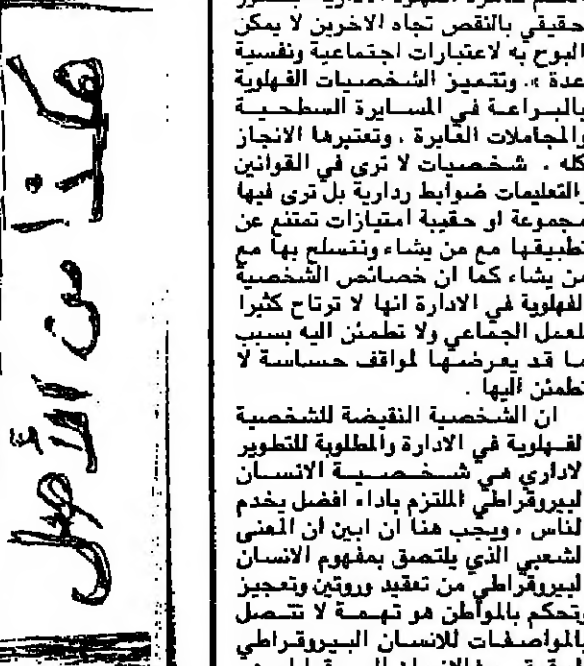 حقيقي بالنقص تجاه الاخرين لا يمكن
البوح به لاعتبارات اجتماعية ونفسية
عدة ». وتتميز الشخصيات الفهلوية
بالبراعة في المسايرة السطحية
والمجاملات العابرة ، وتعتبرها الانجاز
كله . شخصيات لا ترى في القوانين
والتعليمات ضوابط ردارية بل ترى فيها
مجموعة او حقيبة امتيازات تمتنع عن
تطبيقها مع من يشاء وتتسلح بها مع
من يشاء كما ان خصائص الشخصية
لفهلوية في الادارة انها لا ترتاح كثيرا
للعمل الجماعي ولا تطمئن اليه بسبب
ما قد يعرضها لمواقف حساسة لا
تطمئن اليها .
ان الشخصية النقيضة للشخصية
لفهلوية في الادارة والمطلوبة للتطوير
لاداري هي شخصية الانسان
لبيروقراطي الملتزم باداء افضل يخدم
لناس ، ويجب هنا ان ابين ان المعنى
لشعبي الذي يلتصق بمفهوم الانسان
لبيروقراطي من تعقيد وروتين وتعجيز
وتحكم بالمواطن هو تهمة لا تتصل
بالمواصفات للانسان البيروقراطي
من الأصل